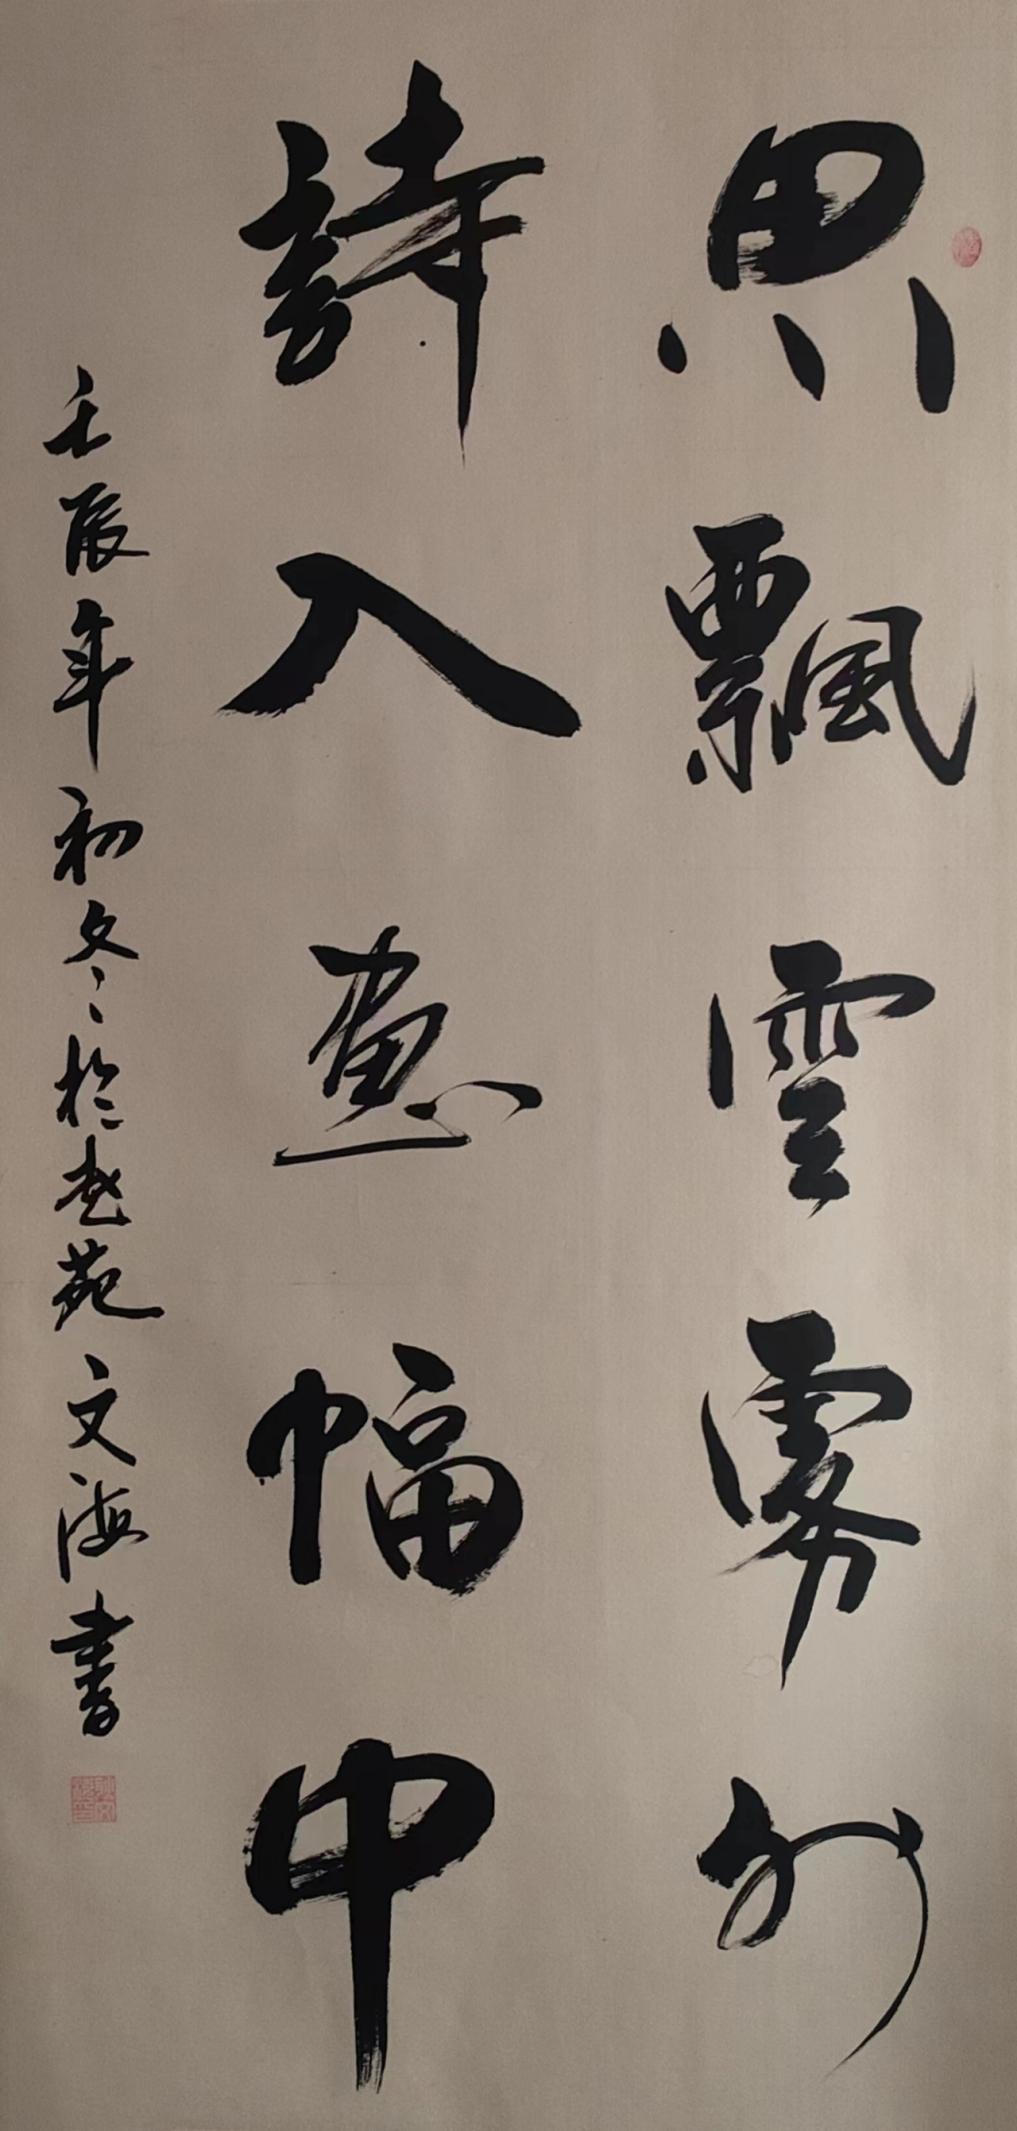 思飄雲霧外
詩入畫幅中
壬辰年初冬於老苑文海書